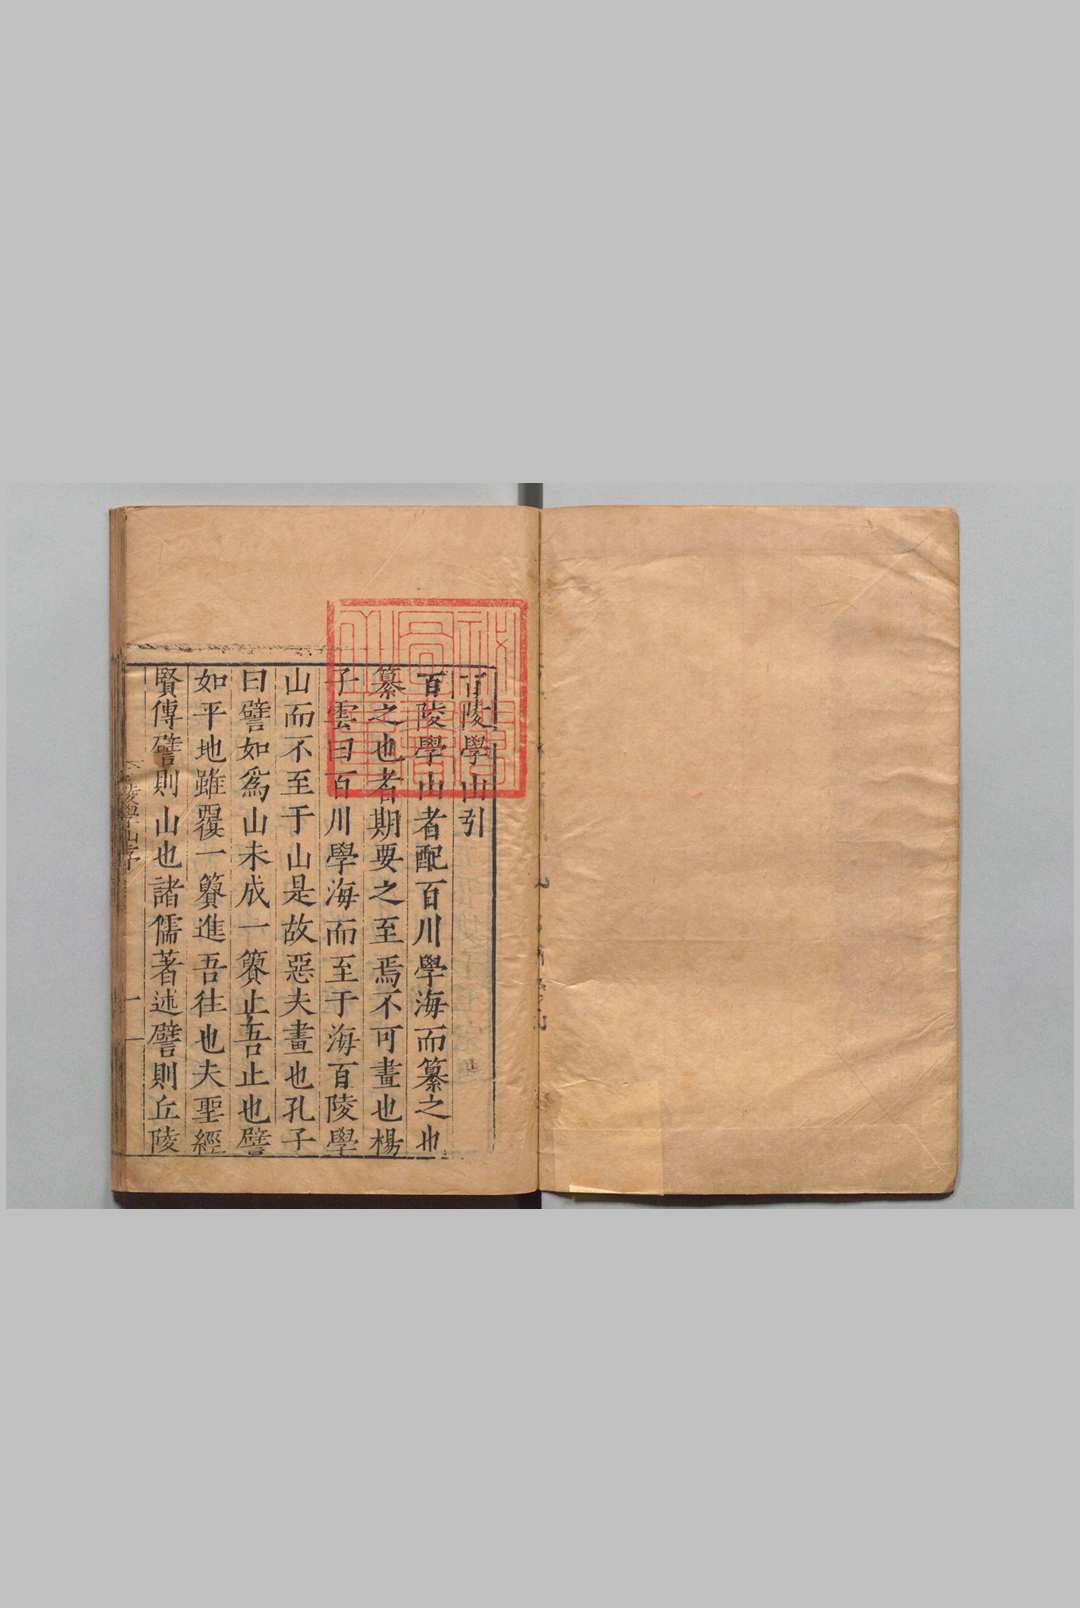 百陵學山引
百陵學山者配百川學海而纂之也
纂之也者期要之至焉不可畫也楊
子雲曰百川學海而至于海百陵學
山而不至于山是故惡夫畫也孔子
曰譬如爲山未成一簣止吾止也譬
如平地雖覆一簣進吾往也夫聖經
賢傳譬則山也諸儒著述譬則丘陵
陵學山序
一